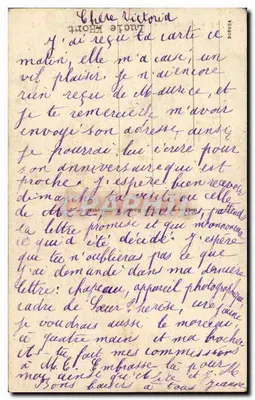 Chère Victoria
Lucie Lhort
J'ai reçu ta carte ce
matin, elle m'a causé un
vif plaisir. Je n'ai encore
rien reçu de Maurice, et
je te remercie de m'avoir
envoyé son adresse, ainsi
je pourrai lui écrire pour
son anniversaire qui est
proche. J'espère bien recevoir
dimanche ta visite ou celle
de j'attends
la lettre promise et qui m'annoncera
ce qui a été décidé. J'espère
que tu n'oublieras pas ce que
j'ai demandé dans ma dernière
lettre: chapeau, appareil photographique
cadre de Sœur Thérèse, une
je voudrais aussi le morceau
à quatre main et ma broche
tu fait mes commissions
à M. C. Embrasse là pour
moi ainsi que
Bons baisers à tous Jeanne